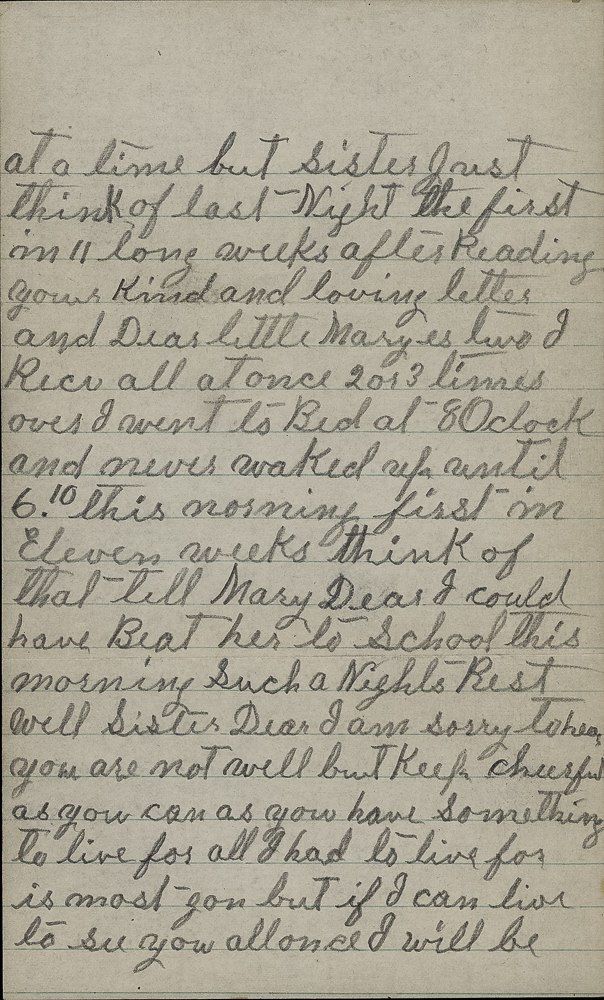 at a time but Sister Just
think of last Night the first
in 11 long weeks after Reading
your Kind and loving letter
and Dear little Maryes two I
Recv all at once 2 or 3 times
over I went to Bed at 8 Oclock
and never waked up until
6.10 this morning first in
Eleven weeks think of
that tell Mary Dear I could
have Beat her to School this
morning Such a Nights Rest
well Sister Dear I am sorry to hear
you are not well but Keep cheerful
as you can as you have something
to live for all I had to live for
is most gon but if I can live
to see you all once I will be